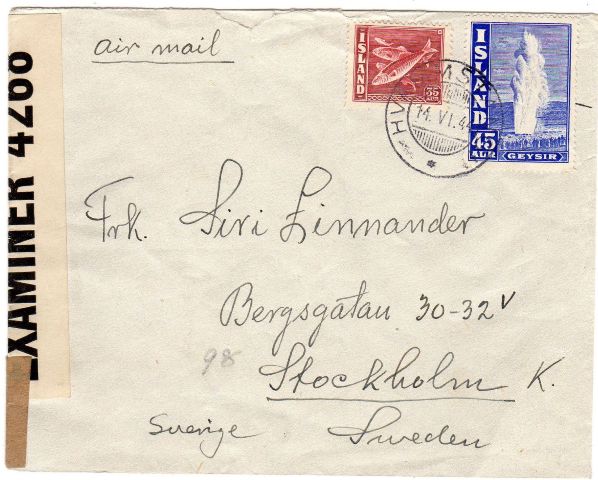 air mail
ÍSLAND
35
AUR
ÍSLAND
45
AUR
GEYSIR
14. VI. 4
EXAMINER 4268
Frk. Siri Linnander
Bergsgatan 30-32 V
98
Stockholm K.
Sverige Sweden